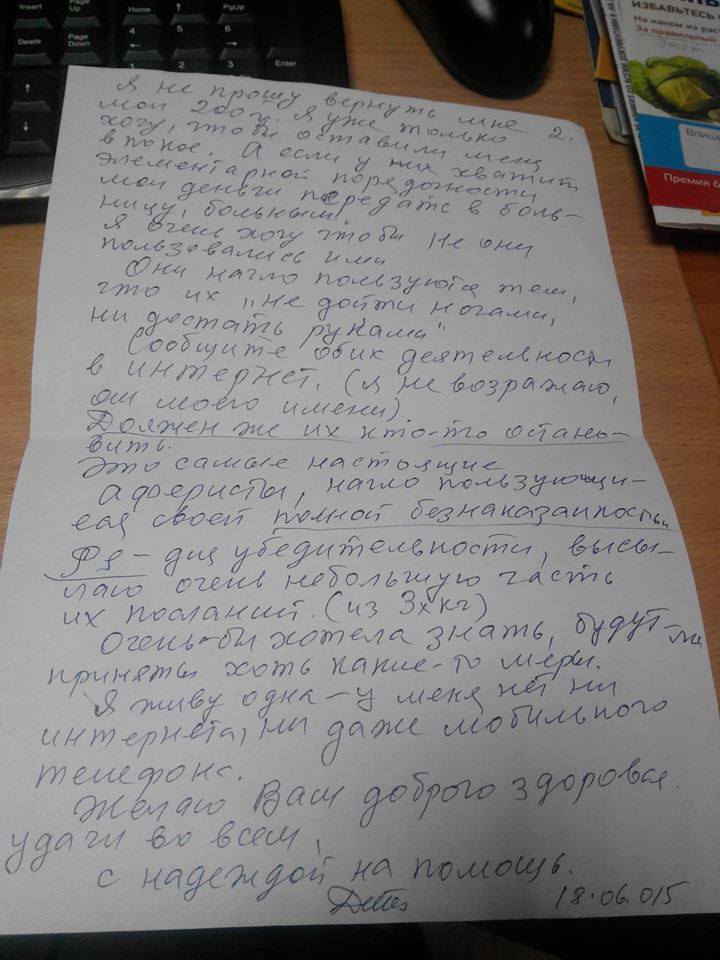 Insert
Page Up
Home
PgUp
Delete
End
Page Down
Num Lock
7
8
9
4
5
6
1
2
3
Enter
ИЗБАВЬТЕСЬ
На каком из рас
За правильный
Впиши
Премия б
2.
Я не прошу вернуть мне
мои 200 Я уже только
хочу, чтобы оставили меня
в покое. А если у них хватит
элементарной порядочности
мои деньги передать в боль-
ницу, больным!
Я очень хочу чтобы не они
пользовались ими
Они нагло пользуются тем,
что их „не дойти ногами,
ни достать руками"
Сообщите об их деятельности
в интернет. (я не возражаю,
от моего имени)
Должен же их кто-то остано-
вить.
Это самые настоящие
аферисты, нагло пользующи-
еся своей полной безнаказанностью
PS – для убедительности, высы-
лаю очень небольшую часть
их посланий. (из 3х кг)
Очень-бы хотела знать, будут-ли
приняты хоть какие-то меры.
Я живу одна – у меня нет ни
интернета, ни даже мобильного
телефона.
Желаю Вам доброго здоровья
удачи во всем,
с надеждой на помощь.
18.06.015